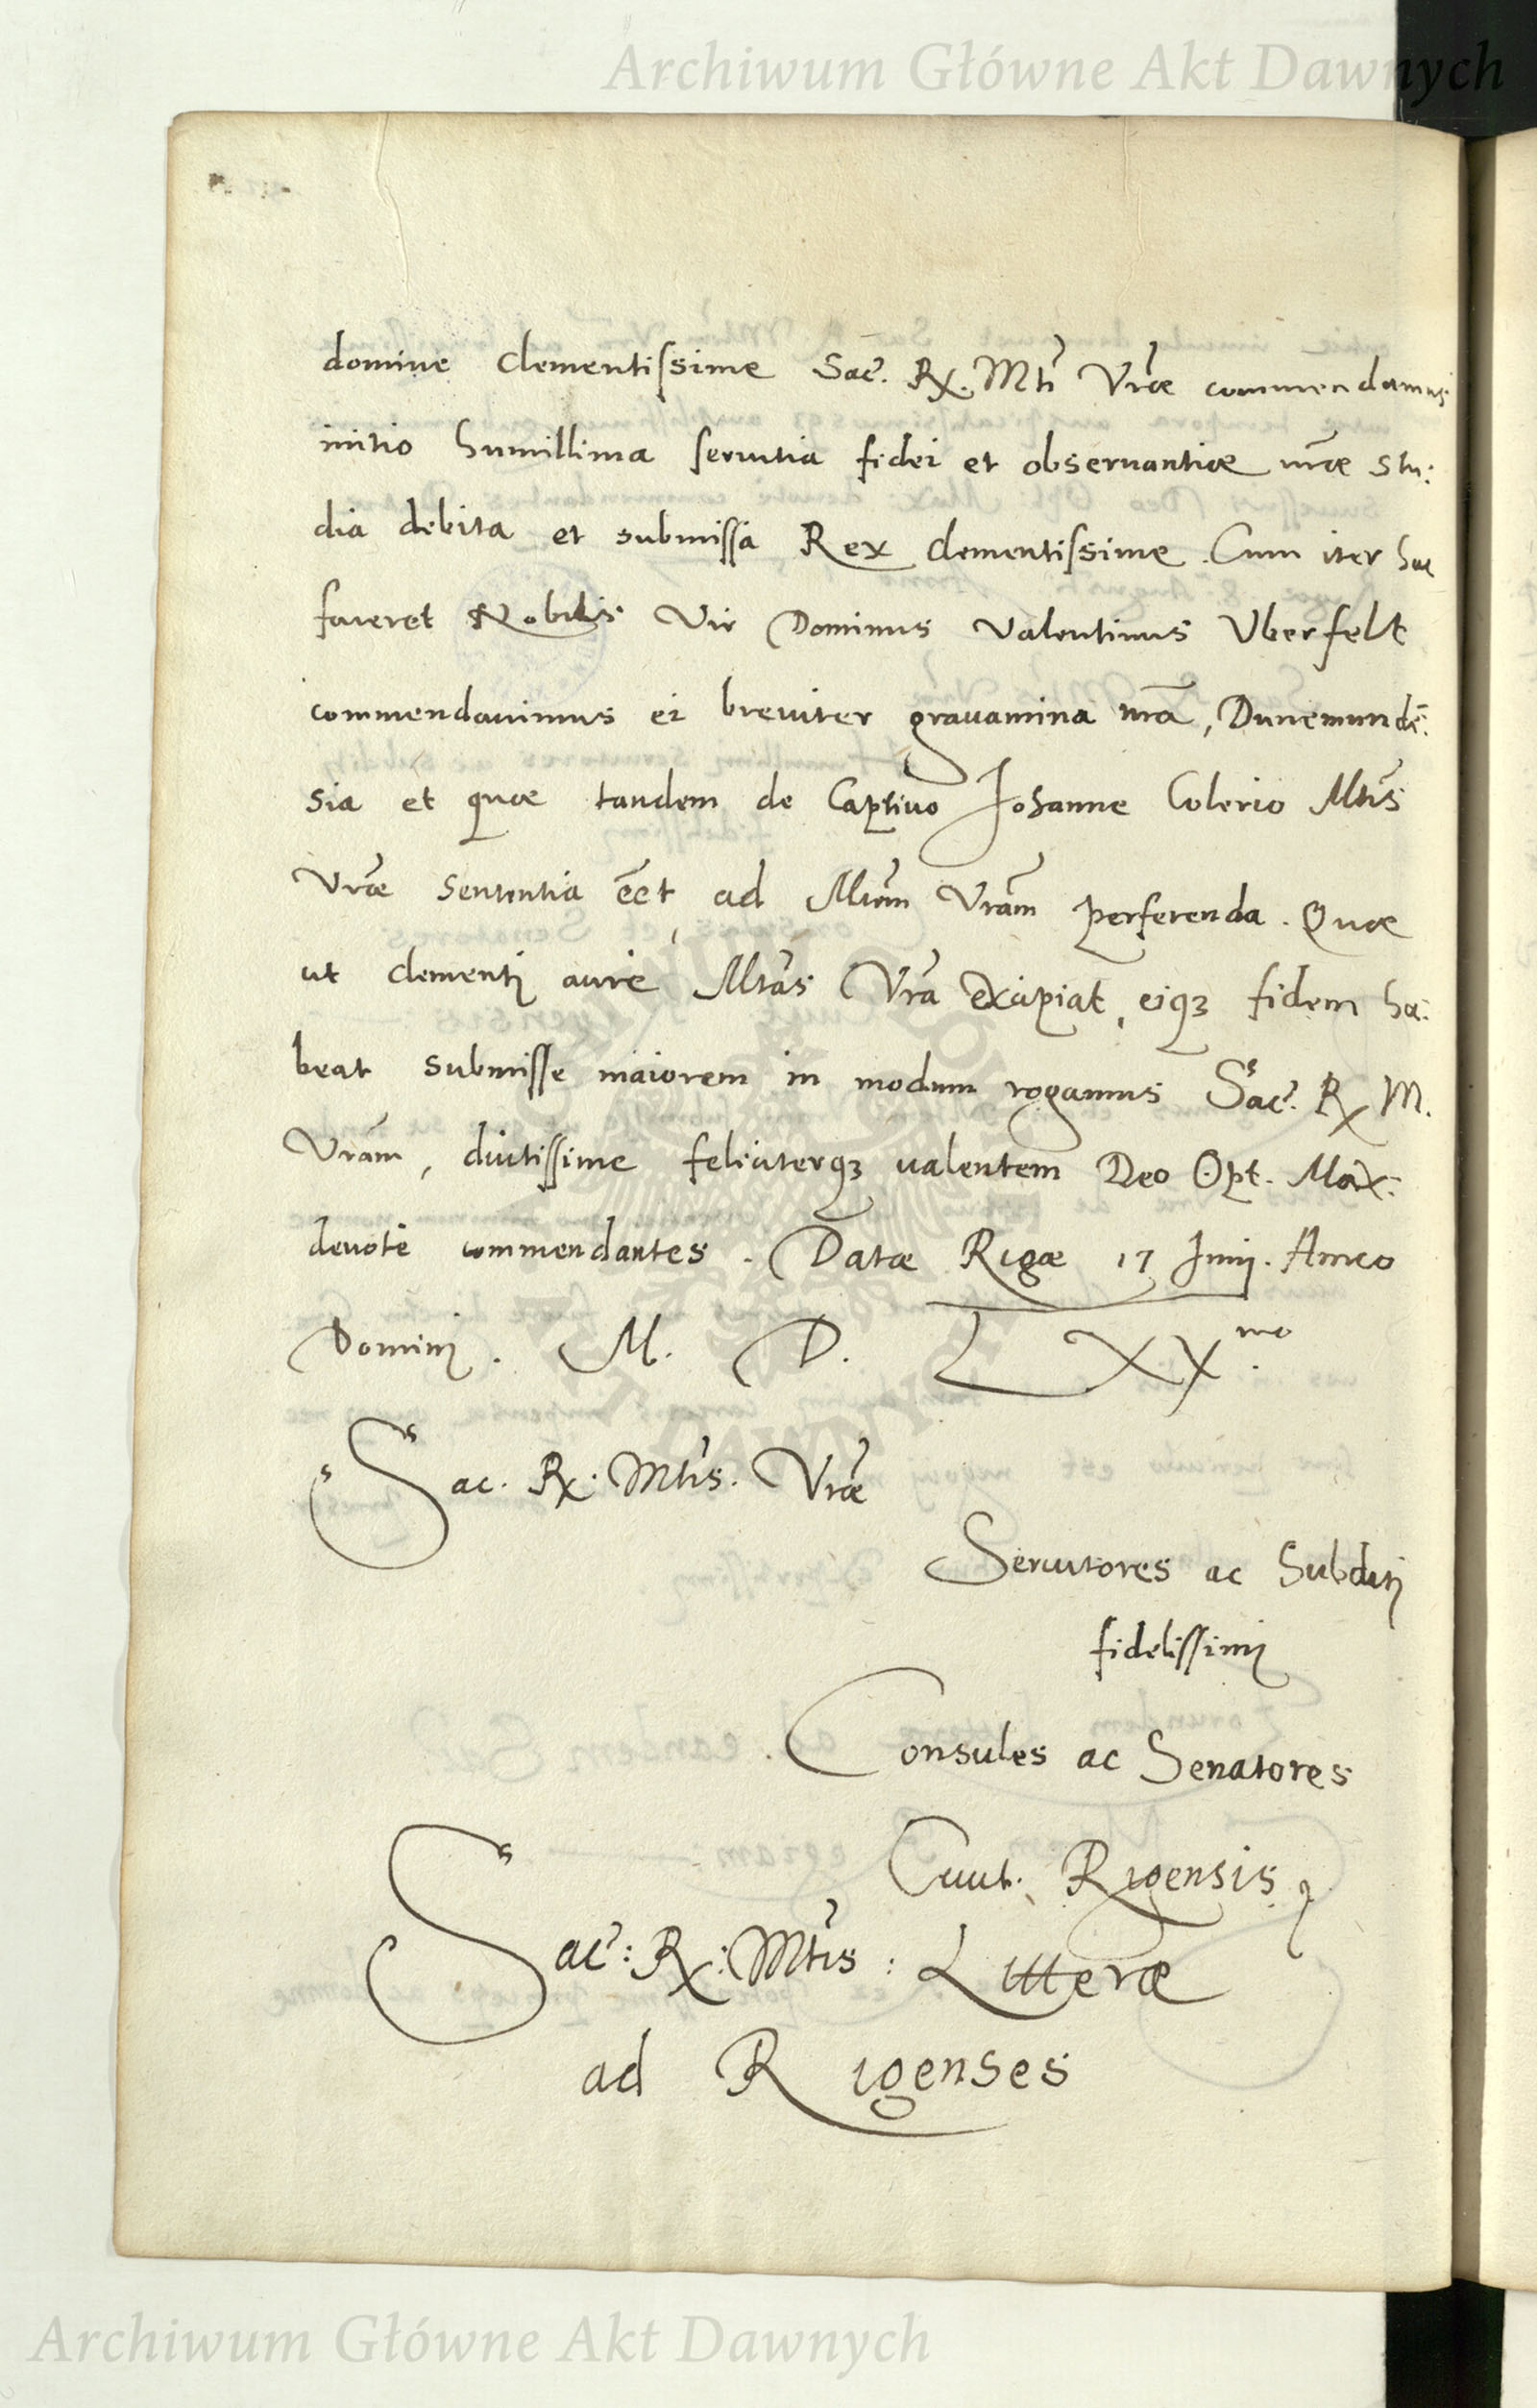 Archiwum Główne Akt Dawnych
domine clementissime Sac. Rx. Mti Vrae commendamus
initio humillima seruitia fidei et obseruantiae nrae stu:
dia debita et submissa Rex clementissime. Cum iter hac
faceret Nobilis Vir Dominus Valentinus Vberfelt
commendauimus ei breuiter grauamina nra, Dunemunde:
sia et quae tandem de Captiuo Johanne Colerio Mtis
Vrae sententia eet, ad Mtem Vram perferenda. Quae
ut clementi aure Mtas Vra excipiat, eiqз fidem ha:
beat submisse maiorem in modum rogamus Sac. Rx M.
Vram, diutissime feliciterqз ualentem Deo Opt. Max:
deuote commendantes. Datae Rigae 17 Junij. Anno
Domini. M. D. LXX mo.
Sac. Rx. Mtis. Vrae
Seruitores ac Subditi
fidelissimi
Consules ac Senatores
Ciuit. Rigensis
Sac: Rx: Mtis: Litterae
ad Rigenses
Archiwum Główne Akt Dawnych